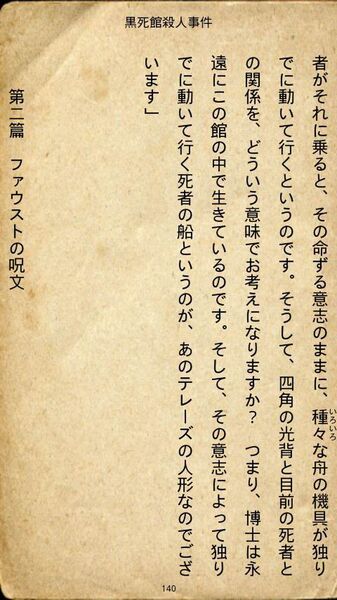 黒死館殺人事件
者がそれに乗ると、その命ずる意志のままに、種々な舟の機具が独り
いろいろ
でに動いて行くというのです。そうして、四角の光背と目前の死者と
の関係を、どういう意味でお考えになりますか？　つまり、博士は永
遠にこの館の中で生きているのです。そして、その意志によって独り
でに動いて行く死者の船というのが、あのテレーズの人形なのでござ
います」
第二篇　ファウストの呪文
140